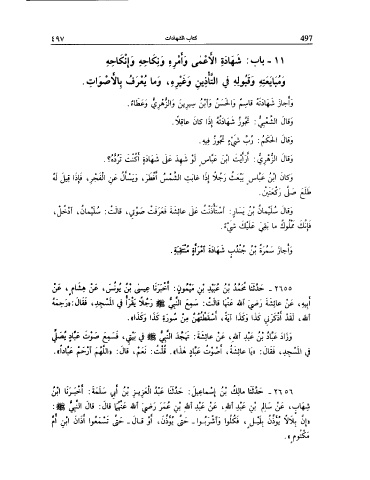 ٤٩٧ كتاب الشهادات 497
١١ - باب: شَهَادَةِ الأَعْمَى وَأَمْرِهِ وَنِكَاحِهِ وَإِنْكَاحِهِ
وَمُبَايَعَتِهِ وَقَبُولِهِ فِي التَّأْذِينِ وَغَيْرِهِ، وَمَا يُعْرَفُ بِالأَصْوَاتِ.
وَأَجَازَ شَهَادَتَهُ قَاسِمٌ وَالحَسَنُ وَابْنُ سِيرِينَ وَالزُّهْرِيُّ وَعَطَاءٌ.
وَقَالَ الشَّعْبِيُّ: تَجُوزُ شَهَادَتُهُ إِذَا كانَ عاقِلًا.
وَقَالَ الحَكَمُ: رُبَّ شَيْءٍ تَجُوزُ فِيهِ.
وَقَالَ الزُّهْرِيُّ: أَرَأَيْتَ ابْنَ عَبَّاسٍ لَوْ شَهِدَ عَلَى شَهَادَةٍ أَكُنْتَ تَرُدُّهُ؟.
وَكانَ ابْنُ عَبَّاسٍ يَبْعَثُ رَجُلًا إِذَا غابَتِ الشَّمْسُ أَفْطَرَ، وَيَسْأَلُ عَنِ الْفَجْرِ، فَإِذَا قِيلَ لَهُ
طَلَعَ صَلَّى رَكْعَتَيْنِ.
وَقَالَ سُلَيْمَانُ بْنُ يَسَارٍ: اسْتَأْذَنْتُ عَلَى عائِشَةَ فَعَرَفَتْ صَوْتِي، قالَتْ: سُلَيْمَانُ، ادْخُلْ،
فَإِنَّكَ مَمْلُوكٌ ما بَقِيَ عَلَيْكَ شَيْءٌ.
وَأَجَازَ سَمُرَةُ بْنُ جُنْدُبٍ شَهَادَةَ امْرَأَةٍ مُنْتَقِبَةٍ.
٢٦٥٥ - حَدَّثَنَا مُحَمَّدُ بْنُ عُبَيْدِ بْنِ مَيْمُونٍ: أَخْبَرَنَا عِيسى بْنُ يُونُسَ، عَنْ هِشَامٍ، عَنْ
أَبِيهِ، عَنْ عائِشَةَ رَضِيَ اللهُ عَنْهَا قالَتْ: سَمِعَ النَّبِيُّ ﷺ رَجُلًا يَقْرَأُ فِي المَسْجِدِ، فَقَالَ: «رَحِمَهُ
اللهُ، لَقَدْ أَذْكَرَنِي كَذَا وَكَذَا آيَةً، أَسْقَطْتُهُنَّ مِنْ سُورَةِ كَذَا وَكَذَا».
وَزَادَ عَبَّادُ بْنُ عَبْدِ اللهِ، عَنْ عائِشَةَ: تَهَجَّدَ النَّبِيُّ ﷺ فِي بَيْتِي، فَسَمِعَ صَوْتَ عَبَّادٍ يُصَلِّي
فِي المَسْجِدِ، فَقَالَ: «يَا عائِشَةُ، أَصَوْتُ عَبَّادٍ هٰذَا». قُلْتُ: نَعَمْ، قالَ: «اللَّهُمَّ ارْحَمْ عَبَّادًا».
٢٦٥٦ - حَدَّثَنَا مالِكُ بْنُ إِسْماعِيلَ: حَدَّثَنَا عَبْدُ الْعَزِيزِ بْنُ أَبِي سَلَمَةَ: أَخْبَرَنَا ابْنُ
شِهَابٍ، عَنْ سَالِمِ بْنِ عَبْدِ اللهِ، عَنْ عَبْدِ اللهِ بْنِ عُمَرَ رَضِيَ اللهُ عَنْهُمَا قالَ: قالَ النَّبِيُّ ﷺ:
«إِنَّ بِلَالًا يُؤَذِّنُ بِلَيْلٍ، فَكُلُوا وَاشْرَبُوا - حَتَّى يُؤَذِّنَ، أَوْ قالَ - حَتَّى تَسْمَعُوا أَذَانَ ابْنِ أُمِّ
مَكْتُومٍ».